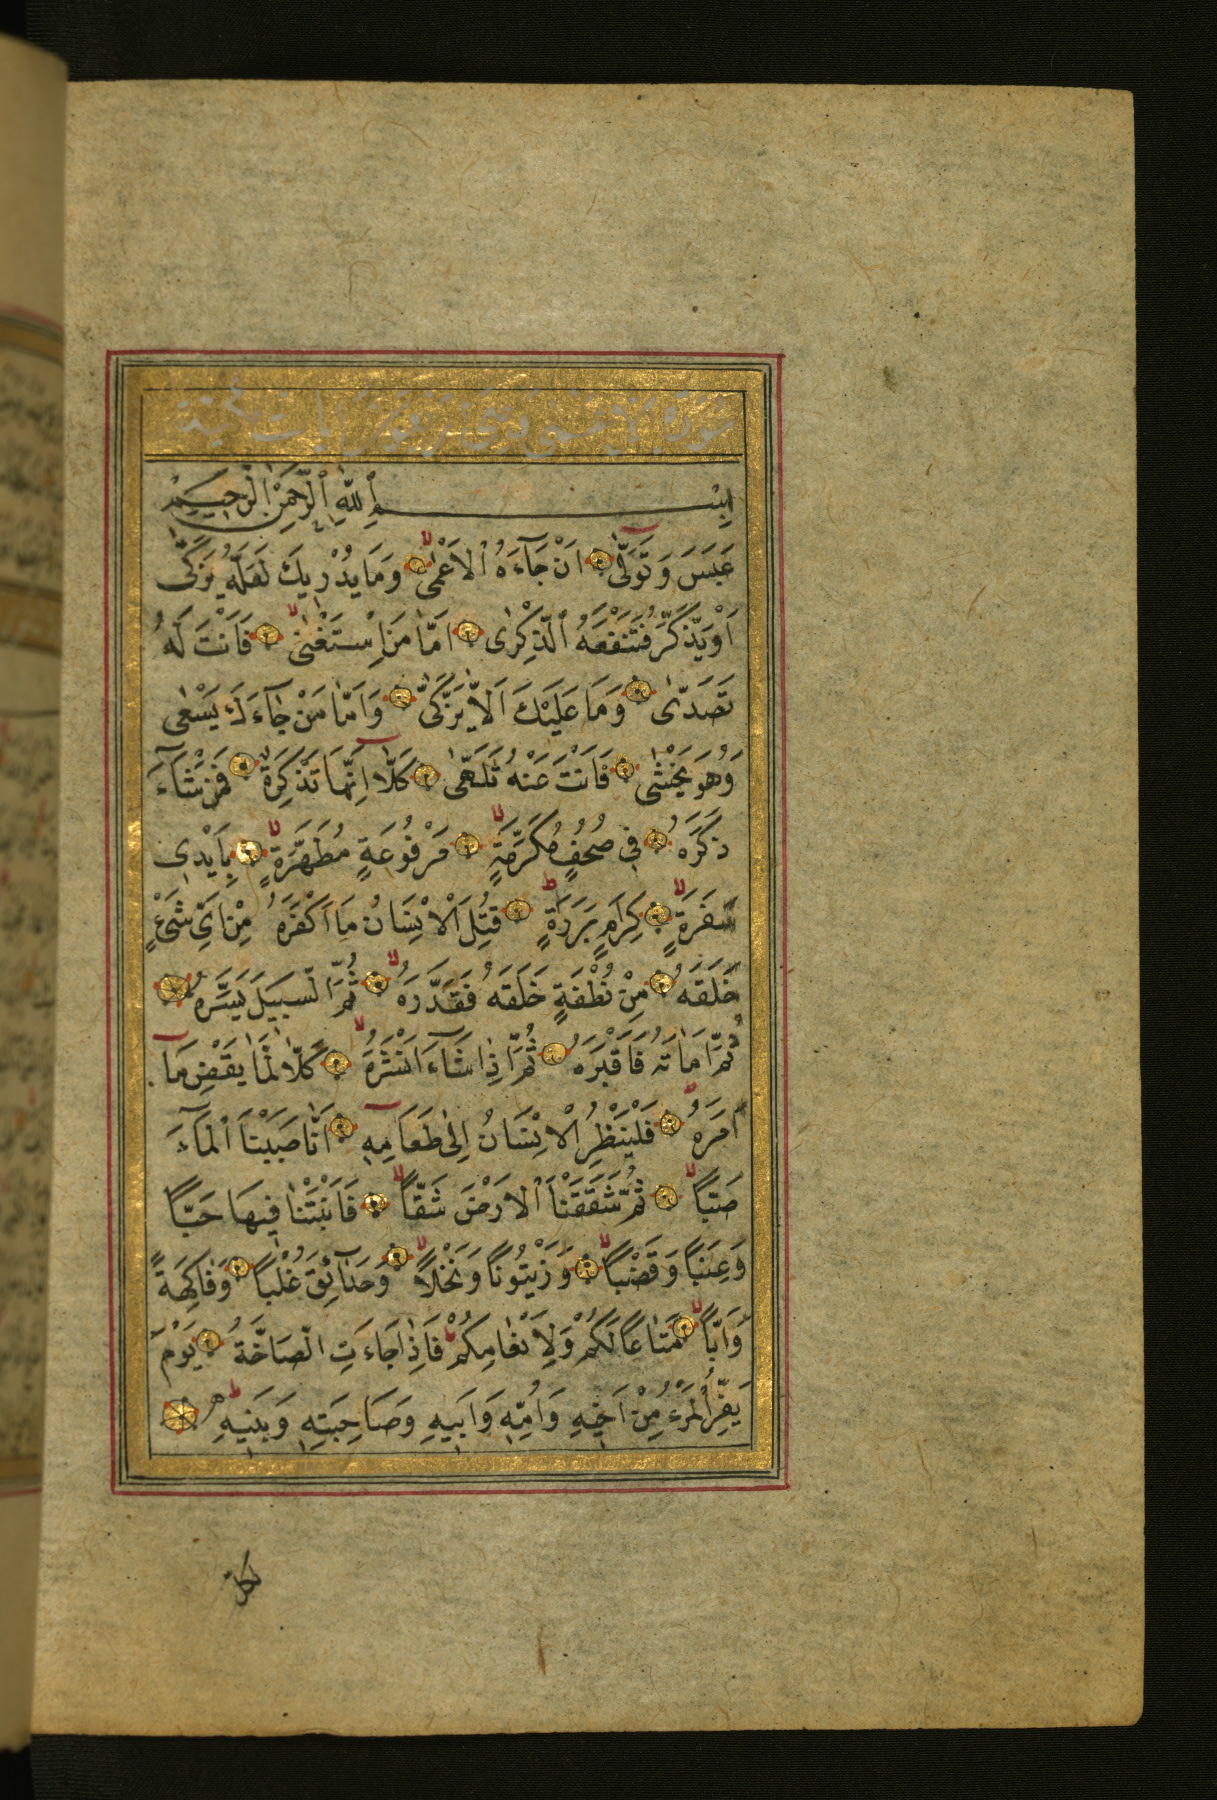 سورة الاعمى وهى آيات مكية
بِسْمِ ٱللّٰهِ ٱلرَّحْمٰنِ ٱلرَّحِيمِ
عَبَسَ وَتَوَلّٰى اَنْ جَآءَهُ ٱلْاَعْمٰى وَمَا يُدْرِيكَ لَعَلَّهُ يَزَّكّٰى
اَوْ يَذَّكَّرُ فَتَنْفَعَهُ ٱلذِّكْرٰى اَمَّا مَنِ اسْتَغْنٰى فَاَنْتَ لَهُ
تَصَدّٰى وَمَا عَلَيْكَ اَلَّا يَزَّكّٰى وَاَمَّا مَنْ جَآءَكَ يَسْعٰى
وَهُوَ يَخْشٰى فَاَنْتَ عَنْهُ تَلَهّٰى كَلَّا اِنَّهَا تَذْكِرَةٌ فَمَنْ شَآءَ
ذَكَرَهُ فِي صُحُفٍ مُكَرَّمَةٍ مَرْفُوعَةٍ مُطَهَّرَةٍ بِاَيْدِى
سَفَرَةٍ كِرَامٍ بَرَرَةٍ قُتِلَ ٱلْاِنْسَانُ مَا اَكْفَرَهُ مِنْ اَىِّ شَىْءٍ
خَلَقَهُ مِنْ نُطْفَةٍ خَلَقَهُ فَقَدَّرَهُ ثُمَّ السَّبِيلَ يَسَّرَهُ
ثُمَّ اَمَاتَهُ فَاَقْبَرَهُ ثُمَّ اِذَا شَآءَ اَنْشَرَهُ كَلَّا لَمَّا يَقْضِ مَآ
اَمَرَهُ فَلْيَنْظُرِ الْاِنْسَانُ اِلٰى طَعَامِهِ اَنَّا صَبَبْنَا ٱلْمَآءَ
صَبًّا ثُمَّ شَقَقْنَا ٱلْاَرْضَ شَقًّا فَاَنْبَتْنَا فِيهَا حَبًّا
وَعِنَبًا وَقَضْبًا وَزَيْتُونًا وَنَخْلًا وَحَدَآئِقَ غُلْبًا وَفَاكِهَةً
وَاَبًّا مَتَاعًا لَكُمْ وَلِاَنْعَامِكُمْ فَاِذَا جَاءَتِ الصَّاخَّةُ يَوْمَ
يَفِرُّ الْمَرْءُ مِنْ اَخِيهِ وَاُمِّهِ وَاَبِيهِ وَصَاحِبَتِهِ وَبَنِيهِ
لكل